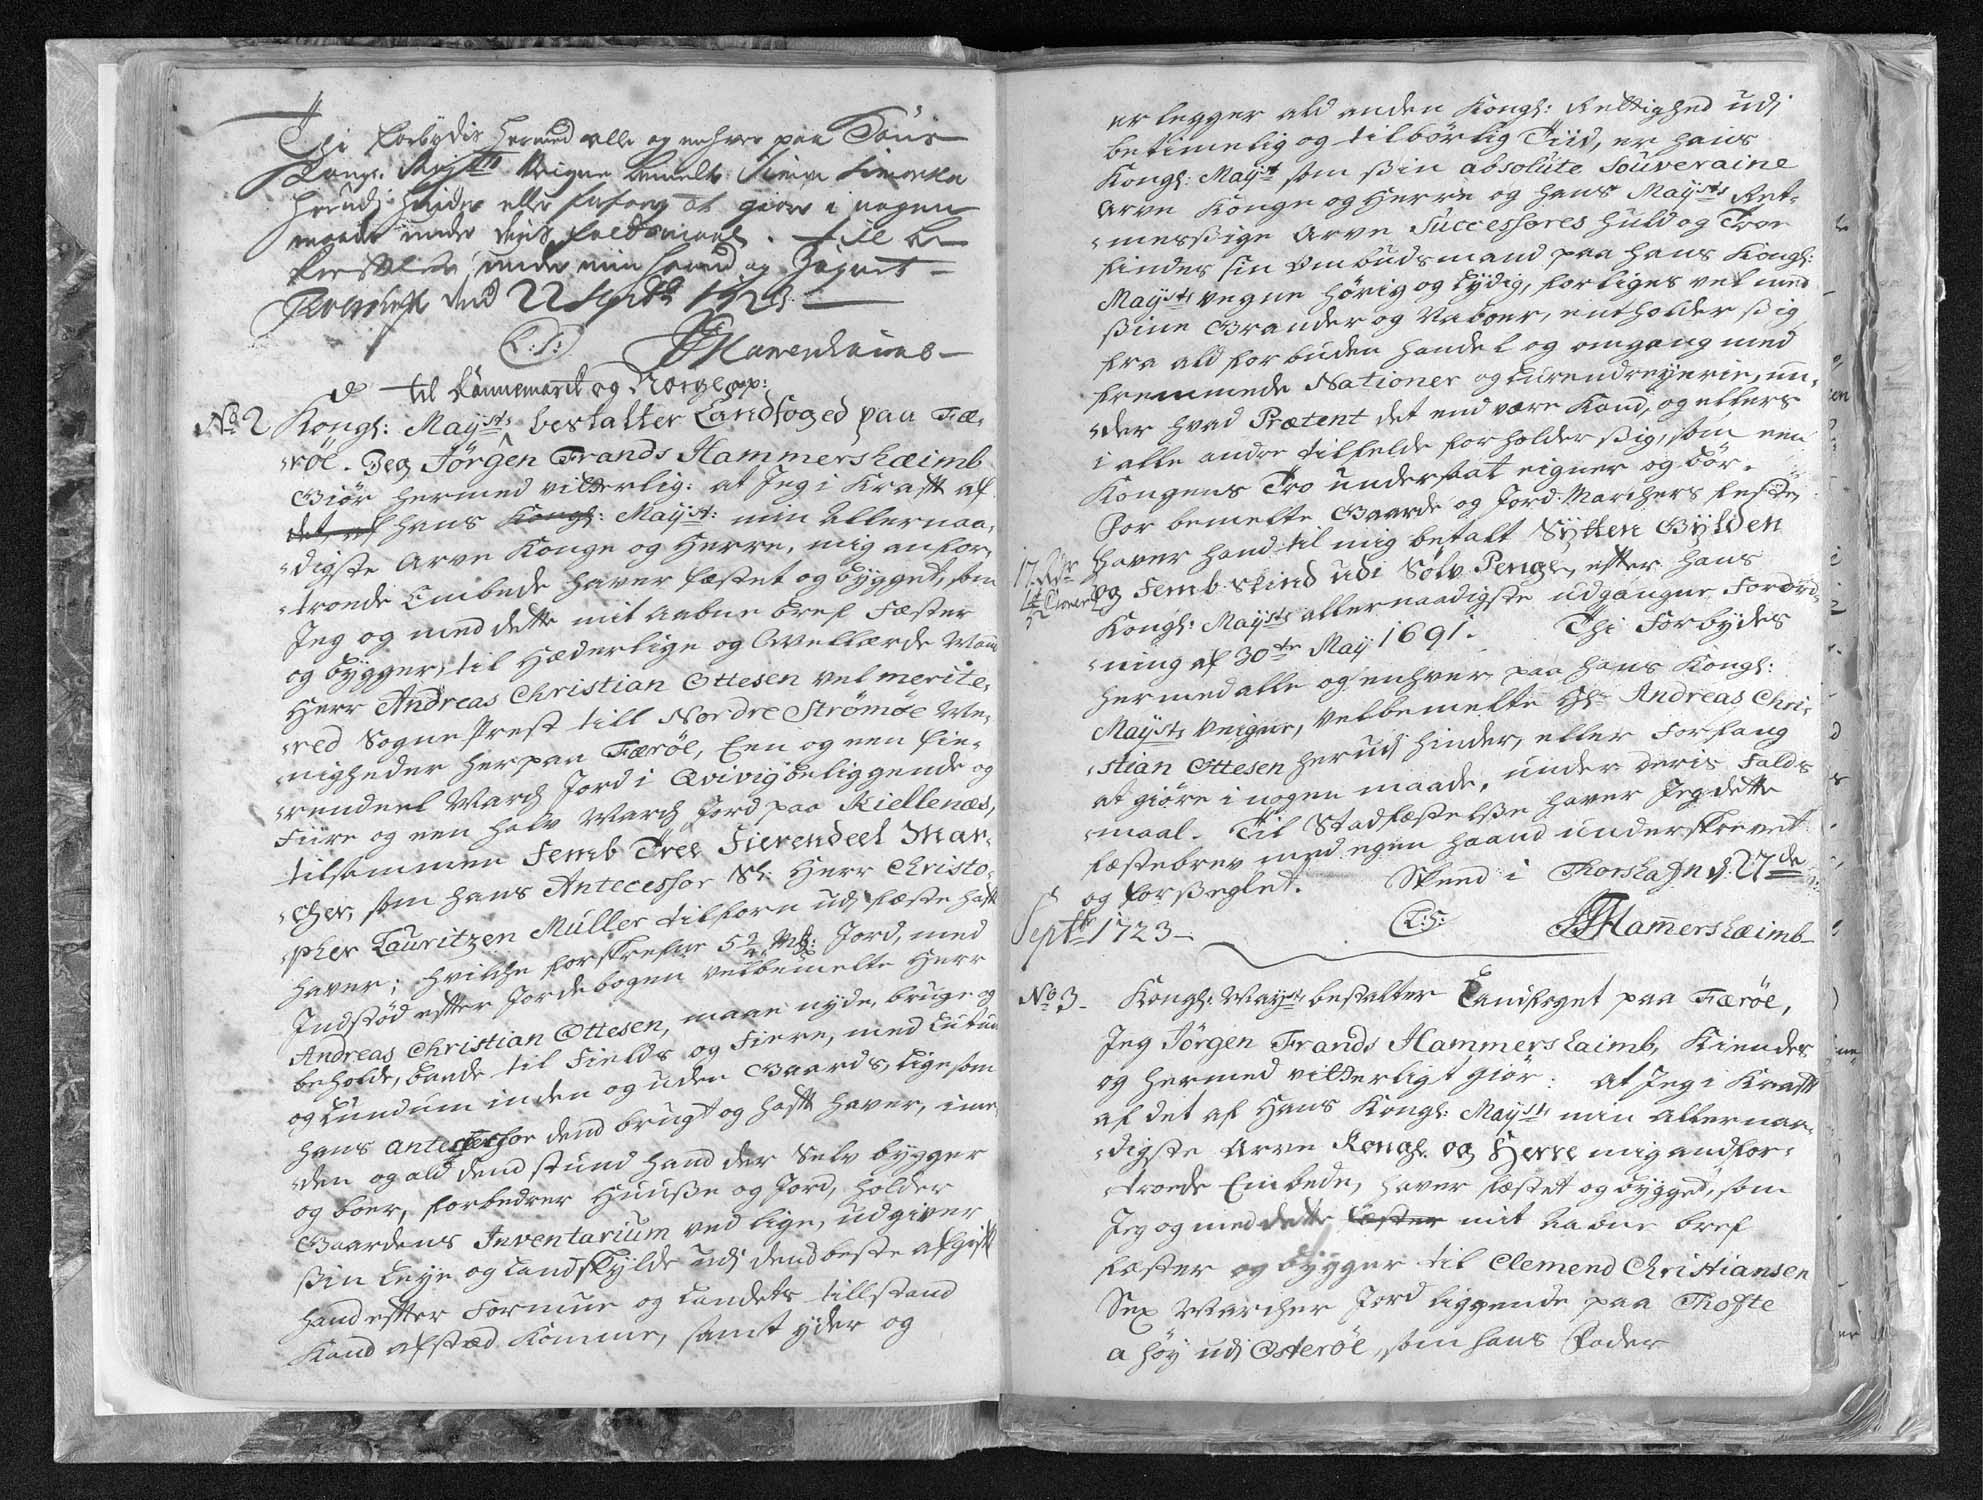 Thi forbydis hermed alle og enhver paa Hans
Kongl. Maysts Veigne bemelte Simen Simonsen
herudj hinder eller forfang at giøre i nogen
maade under deris faldsmaal. till be-
kreftelse under min haand og Zignet
Thorshafn dend 22 Septb 1723.
(L:S:) JFHammershaimb
til Dannemarck og Norge pp:
No 2 Kongl: Maysts bestalter Landfoged paa Fæ-
röe. Jeg Jörgen Frands Hammershæimb
Giör hermed vitterlig: at Jeg i Krafft af
det af hans Kongl: Mayst: min Allernaa-
digste Arve Konge og Herre, mig anfor-
troede Embede haver fæstet og bygget, som
Jeg og med dette mit aabne bref Fæster
og bygger, til Hæderlige og Wellærde Mand
Herr Andreas Christian Ottesen vel merite-
red Sogne Prest till Nordre Strömöe Me-
nigheder her paa Færöe, Een og een fie-
rendeel March Jord i Qvivig beliggende og
Fiire og een halv March Jord paa Kiellenæs,
tilsammen Femb Tree Fierendeel Mar-
cher, som hans Antecessor Sl: Herr Christo-
pher Lauritzen Müller tilforn udj fæste hafft
haver; hvilche forskrefne 5 3/4 Mk: Jord, med
Indstöd efter Jordebogen velbemelte Herr
Andreas Christian Ottesen, maae nyde, bruge og
beholde, baade til Fields og Fiere, med Lutum
og Lundum inden og uden Gaards, ligesom
hans Antecessor dend brugt og hafft haver, ime-
den og ald dend stund hand der Selv bygger
og boer, forbedrer Huuße og Jord, holder
Gaardens Inventarium ved lige, udgiver
ßin Leye og Landskylde udj dend beste afgifft
hand efter Formue og Landets tillstand
Kand afsted komme, samt yder og
erlegger ald anden Kongl: Rettighed udj
betimelig og tilbörlig Tiid, er hans
Kongl: Mayst som ßin absolute Souveraine
Arve Konge og Herre og hans Maysts Ret-
messige Arve Successores huld og Troe
findes sin Ombudsmand paa hans Kongl:
Maysts vegne hörig og lydig, forliges vel med
ßine Grander og Naboer, entholder ßig
fra ald forbuden handel og omgang med
fremmede Nationer og Lurendreyerie, un-
der hvad Prætent det end være Kand, og ellers
i alle andre tilfelde forholder ßig, som een
Kongens Tro undersaat eigner og bör.
For bemelte Gaards og Jord Marchers feste,
haver hand til mig betalt Sytten Gylden
og Femb skind udi Sölv Penge, efter hans
Kongl: Maysts allernaadigste udgangne Forord-
ning af 30te May 1691. Thi Forbydes
hermed alle og enhver paa hans Kongl:
Maysts Veigne, Velbemelte Hr Andreas Chri-
stian Ottesen herudj hinder, eller Forfang
at giöre i nogen maade, under deris Falds
maal. Til Stadfæstelße haver Jeg dette
fæstebrev med egen haand underskrevet
og forßeglet. Skeed i Thorshafn d. 27de
Septb 1723 (L:S:) JFHamershæimb
No 3 Kongl: Mayst bestalter Landfoget paa Færöe,
Jeg Jörgen Frands Hammershaimb, Kiendes
og hermed vitterligt giör: at Jeg i Krafft
af det af Hans Kongl: Mayst min Allernaa-
digste Arve Konge og Herre mig andfor-
troede Embede, haver fæstet og bygget, som
Jeg og med dette fæster mit aabne bref
fæster og bygger til Clemend Christiansen
Sex Marcher Jord liggende paa Thofte
a höy udj Österöe, som hans Fader